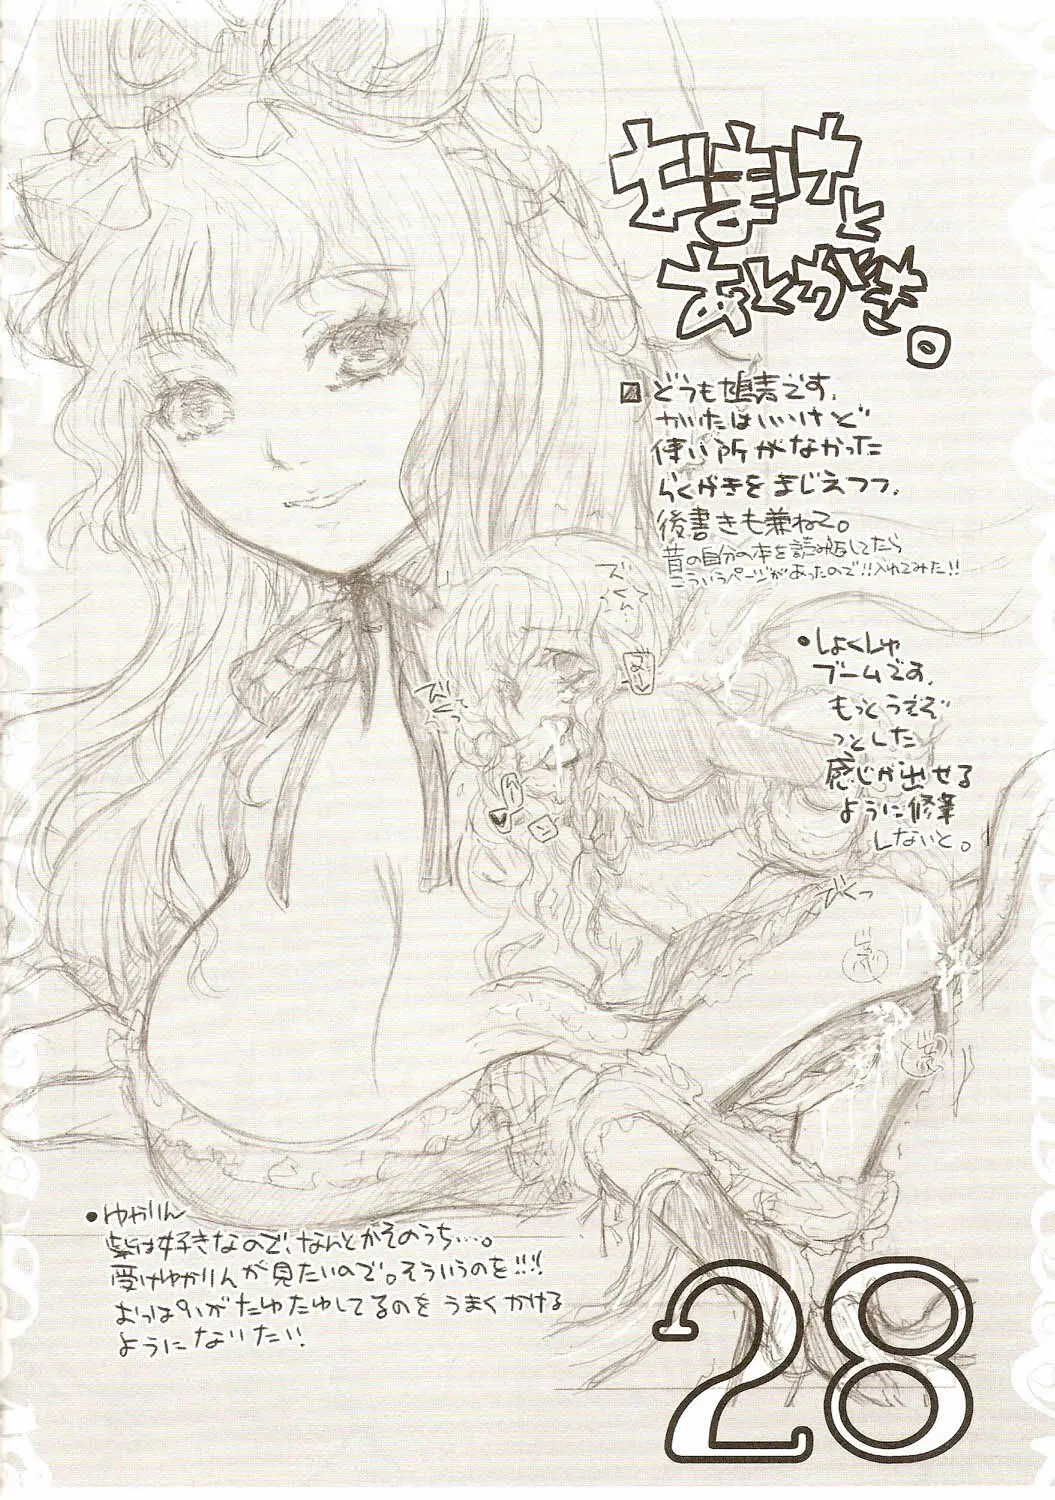 おまけと
あとがき。
どうも鳩春です。
かいたはいいけど
使い所がなかった
らくがきをまじえつつ、
後書きも兼ねて。
昔の自分の本を読み返してたら
こういうページがあったので!!入れてみた!!
しょくしゅ
ブームです。
もっとうぞぞ
っとした
感じが出せる
ように修業
しないと。
ズ
びくっ
ゆかりん
紫は好きなので、なんとかそのうち…。
受けゆかりんが見たいので。そういうのを!!!
おっぱいがたゆたゆしてるのをうまくかける
ようになりたい!
28